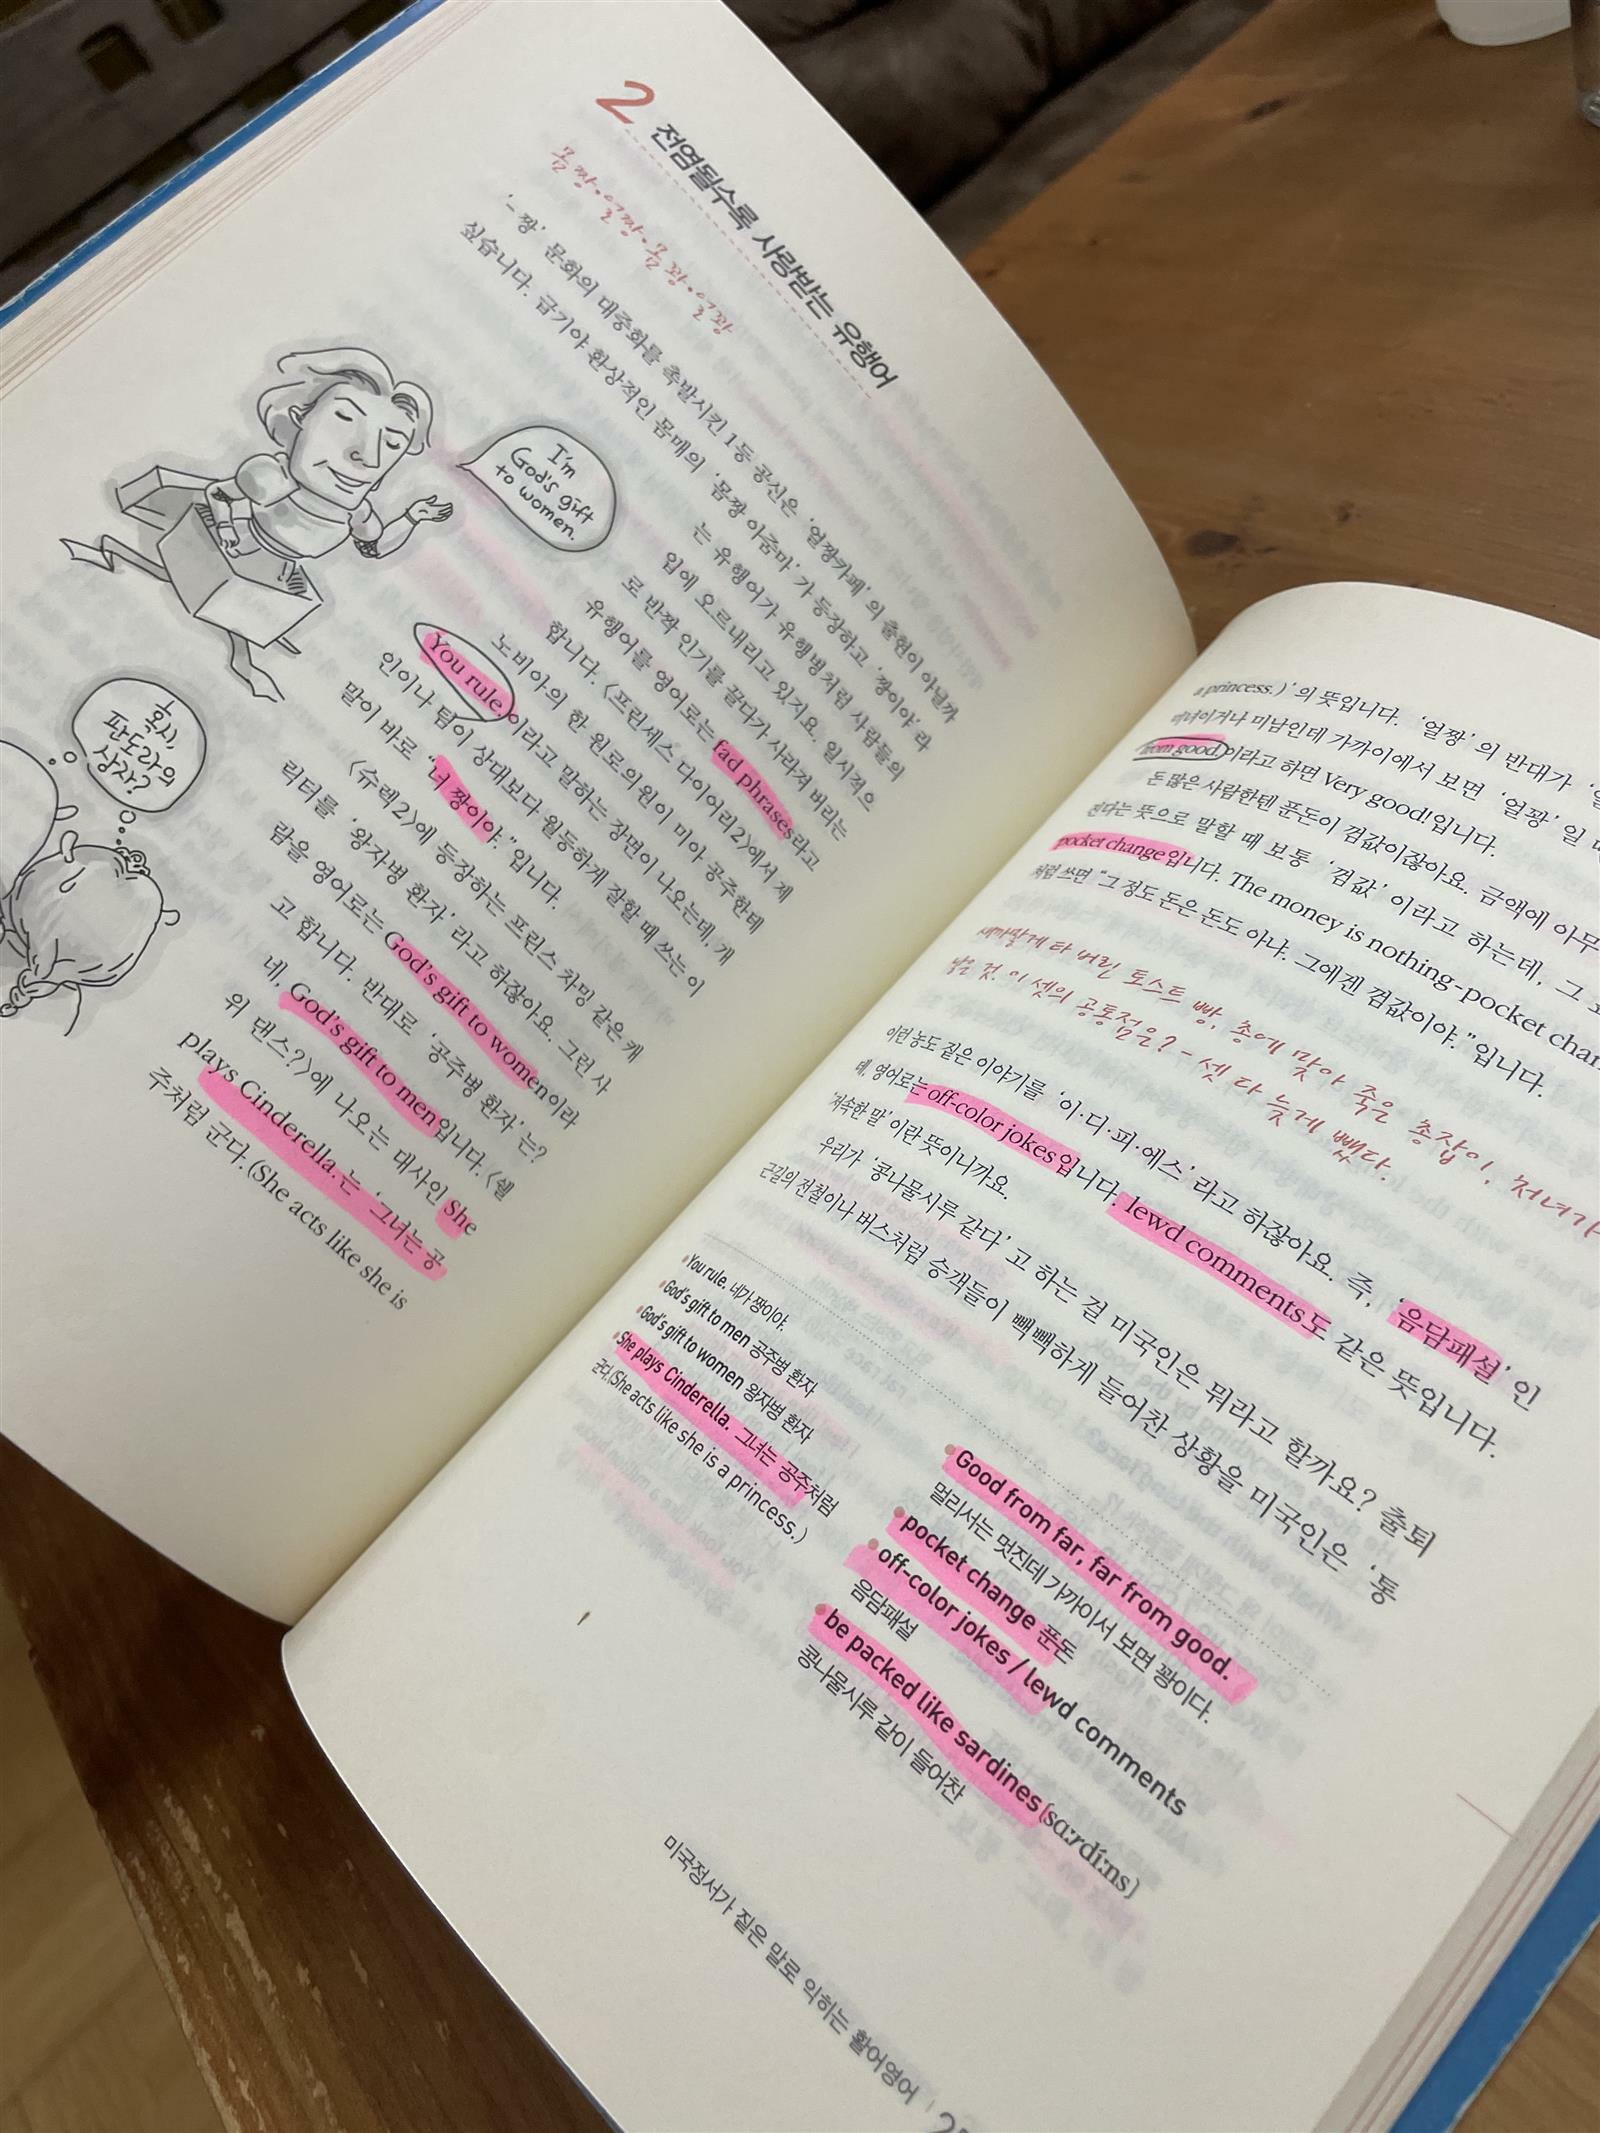 2 전염될수록 사랑받는 유행어
몸짱·얼짱·몸꽝·얼꽝
'-짱' 문화의 대중화를 촉발시킨 1등 공신은 '얼짱카페'의 출현이 아닐까
싶습니다. 급기야 환상적인 몸매의 '몸짱 아줌마'가 등장하고 '짱이야'라
는 유행어가 유행병처럼 사람들의
입에 오르내리고 있지요. 일시적으
로 반짝 인기를 끌다가 사라져 버리는
유행어를 영어로는 fad phrases라고
합니다. <프린세스 다이어리2>에서 제
노비아의 한 원로의원이 미아 공주한테
You rule.이라고 말하는 장면이 나오는데, 개
인이나 팀이 상대보다 월등하게 잘할 때 쓰는 이
말이 바로 "너 짱이야."입니다.
<슈렉2>에 등장하는 프린스 차밍 같은 캐
릭터를 '왕자병 환자'라고 하잖아요. 그런 사
람을 영어로는 God's gift to women이라
고 합니다. 반대로 '공주병 환자'는?
네, God's gift to men입니다. <쉘
위 댄스?>에 나오는 대사인 She
plays Cinderella.는 '그녀는 공
주처럼 군다.(She acts like she is
I'm
God's gift
to women.
혹시,
판도라의
상자?
a princess.)'의 뜻입니다. '얼짱'의 반대가
미녀이거나 미남인데 가까이에서 보면 '얼꽝'일
from good.이라고 하면 Very good!입니다.
돈 많은 사람한텐 푼돈이 껌값이잖아요. 금액에 아무
진다는 뜻으로 말할 때 보통 '껌값'이라고 하는데, 그
pocket change입니다. The money is nothing-pocket
처럼 쓰면 "그 정도 돈은 돈도 아냐. 그에겐 껌값이야."입니다.
새까맣게 타 버린 토스트 빵, 총에 맞아 죽은 총잡이, 처녀가
낳은 것. 이 셋의 공통점은? - 셋 다 늦게 뺐다.
이런 농도 짙은 이야기를 '이·디·피·에스'라고 하잖아요. 즉, '음담패설'인
데, 영어로는 off-color jokes입니다. lewd comments도 같은 뜻입니다.
'저속한 말'이란 뜻이니까요.
우리가 '콩나물시루 같다'고 하는 걸 미국인은 뭐라고 할까요? 출퇴
근길의 전철이나 버스처럼 승객들이 빽빽하게 들어찬 상황을 미국인은 '통
You rule. 네가 짱이야.
God's gift to men 공주병 환자
God's gift to women 왕자병 환자
She plays Cinderella. 그녀는 공주처럼
군다.(She acts like she is a princess.)
Good from far, far from good.
멀리서는 멋진데 가까이서 보면 꽝이다.
pocket change 푼돈
off-color jokes / lewd comments
음담패설
be packed like sardines[sɑːrdíːns]
콩나물시루 같이 들어찬
미국정서가 짙은 말로 익히는 활어영어